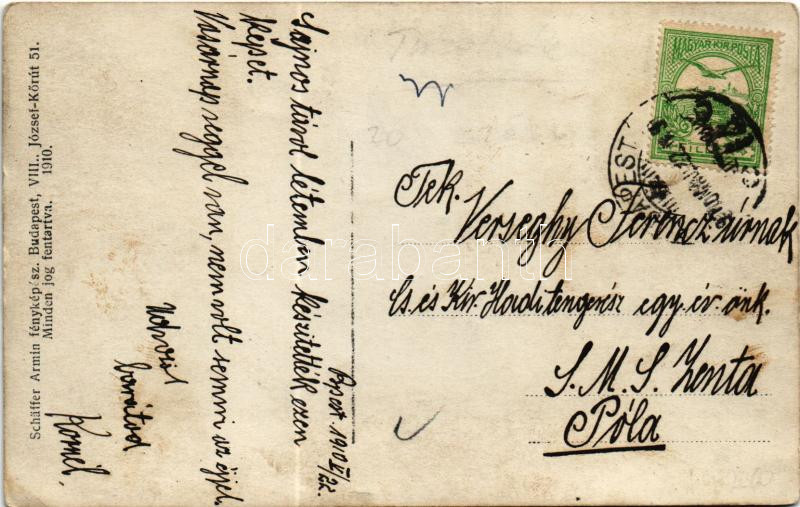 Schäffer Armin fényképész. Budapest, VIII., József-Körút 51.
Minden jog fentartva. 1910.
Bpest. 1910 V/22.
Sajnos távol létemben készítették ezen
képet.
Vasárnap reggel van, nem volt semmi az éjjel.
Udvözöl
barátod
Kornél.
MAGYAR KIR. POSTA
Tek.
Verseghy Ferencz úrnak
Cs. és Kir. Haditengerész egy év. önk.
S. M. S. Zenta
Póla
darabanth